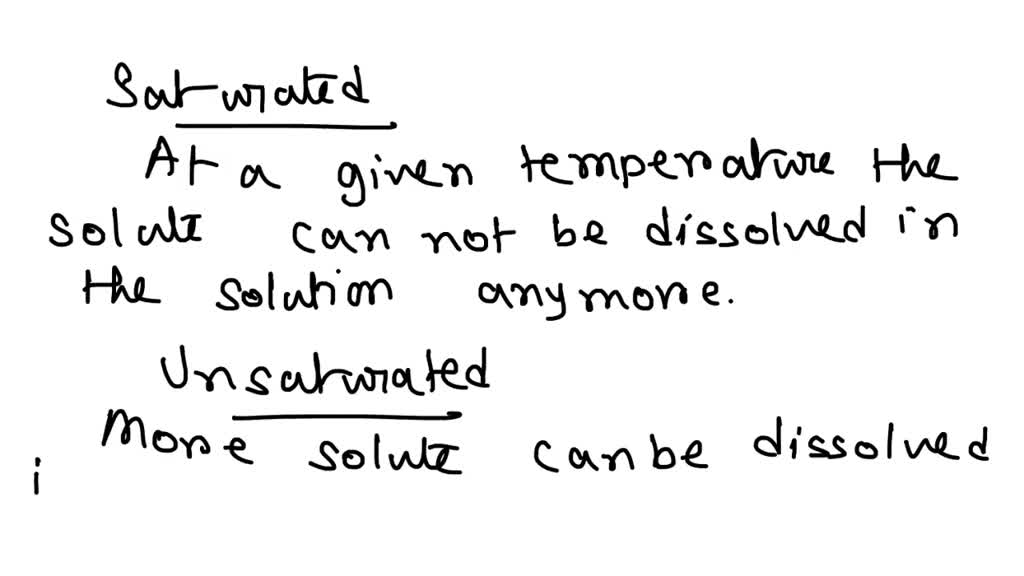 Saturated
At a given temperature the
solute can not be dissolved in
the solution anymore.
Unsaturated
More solute can be dissolved
i